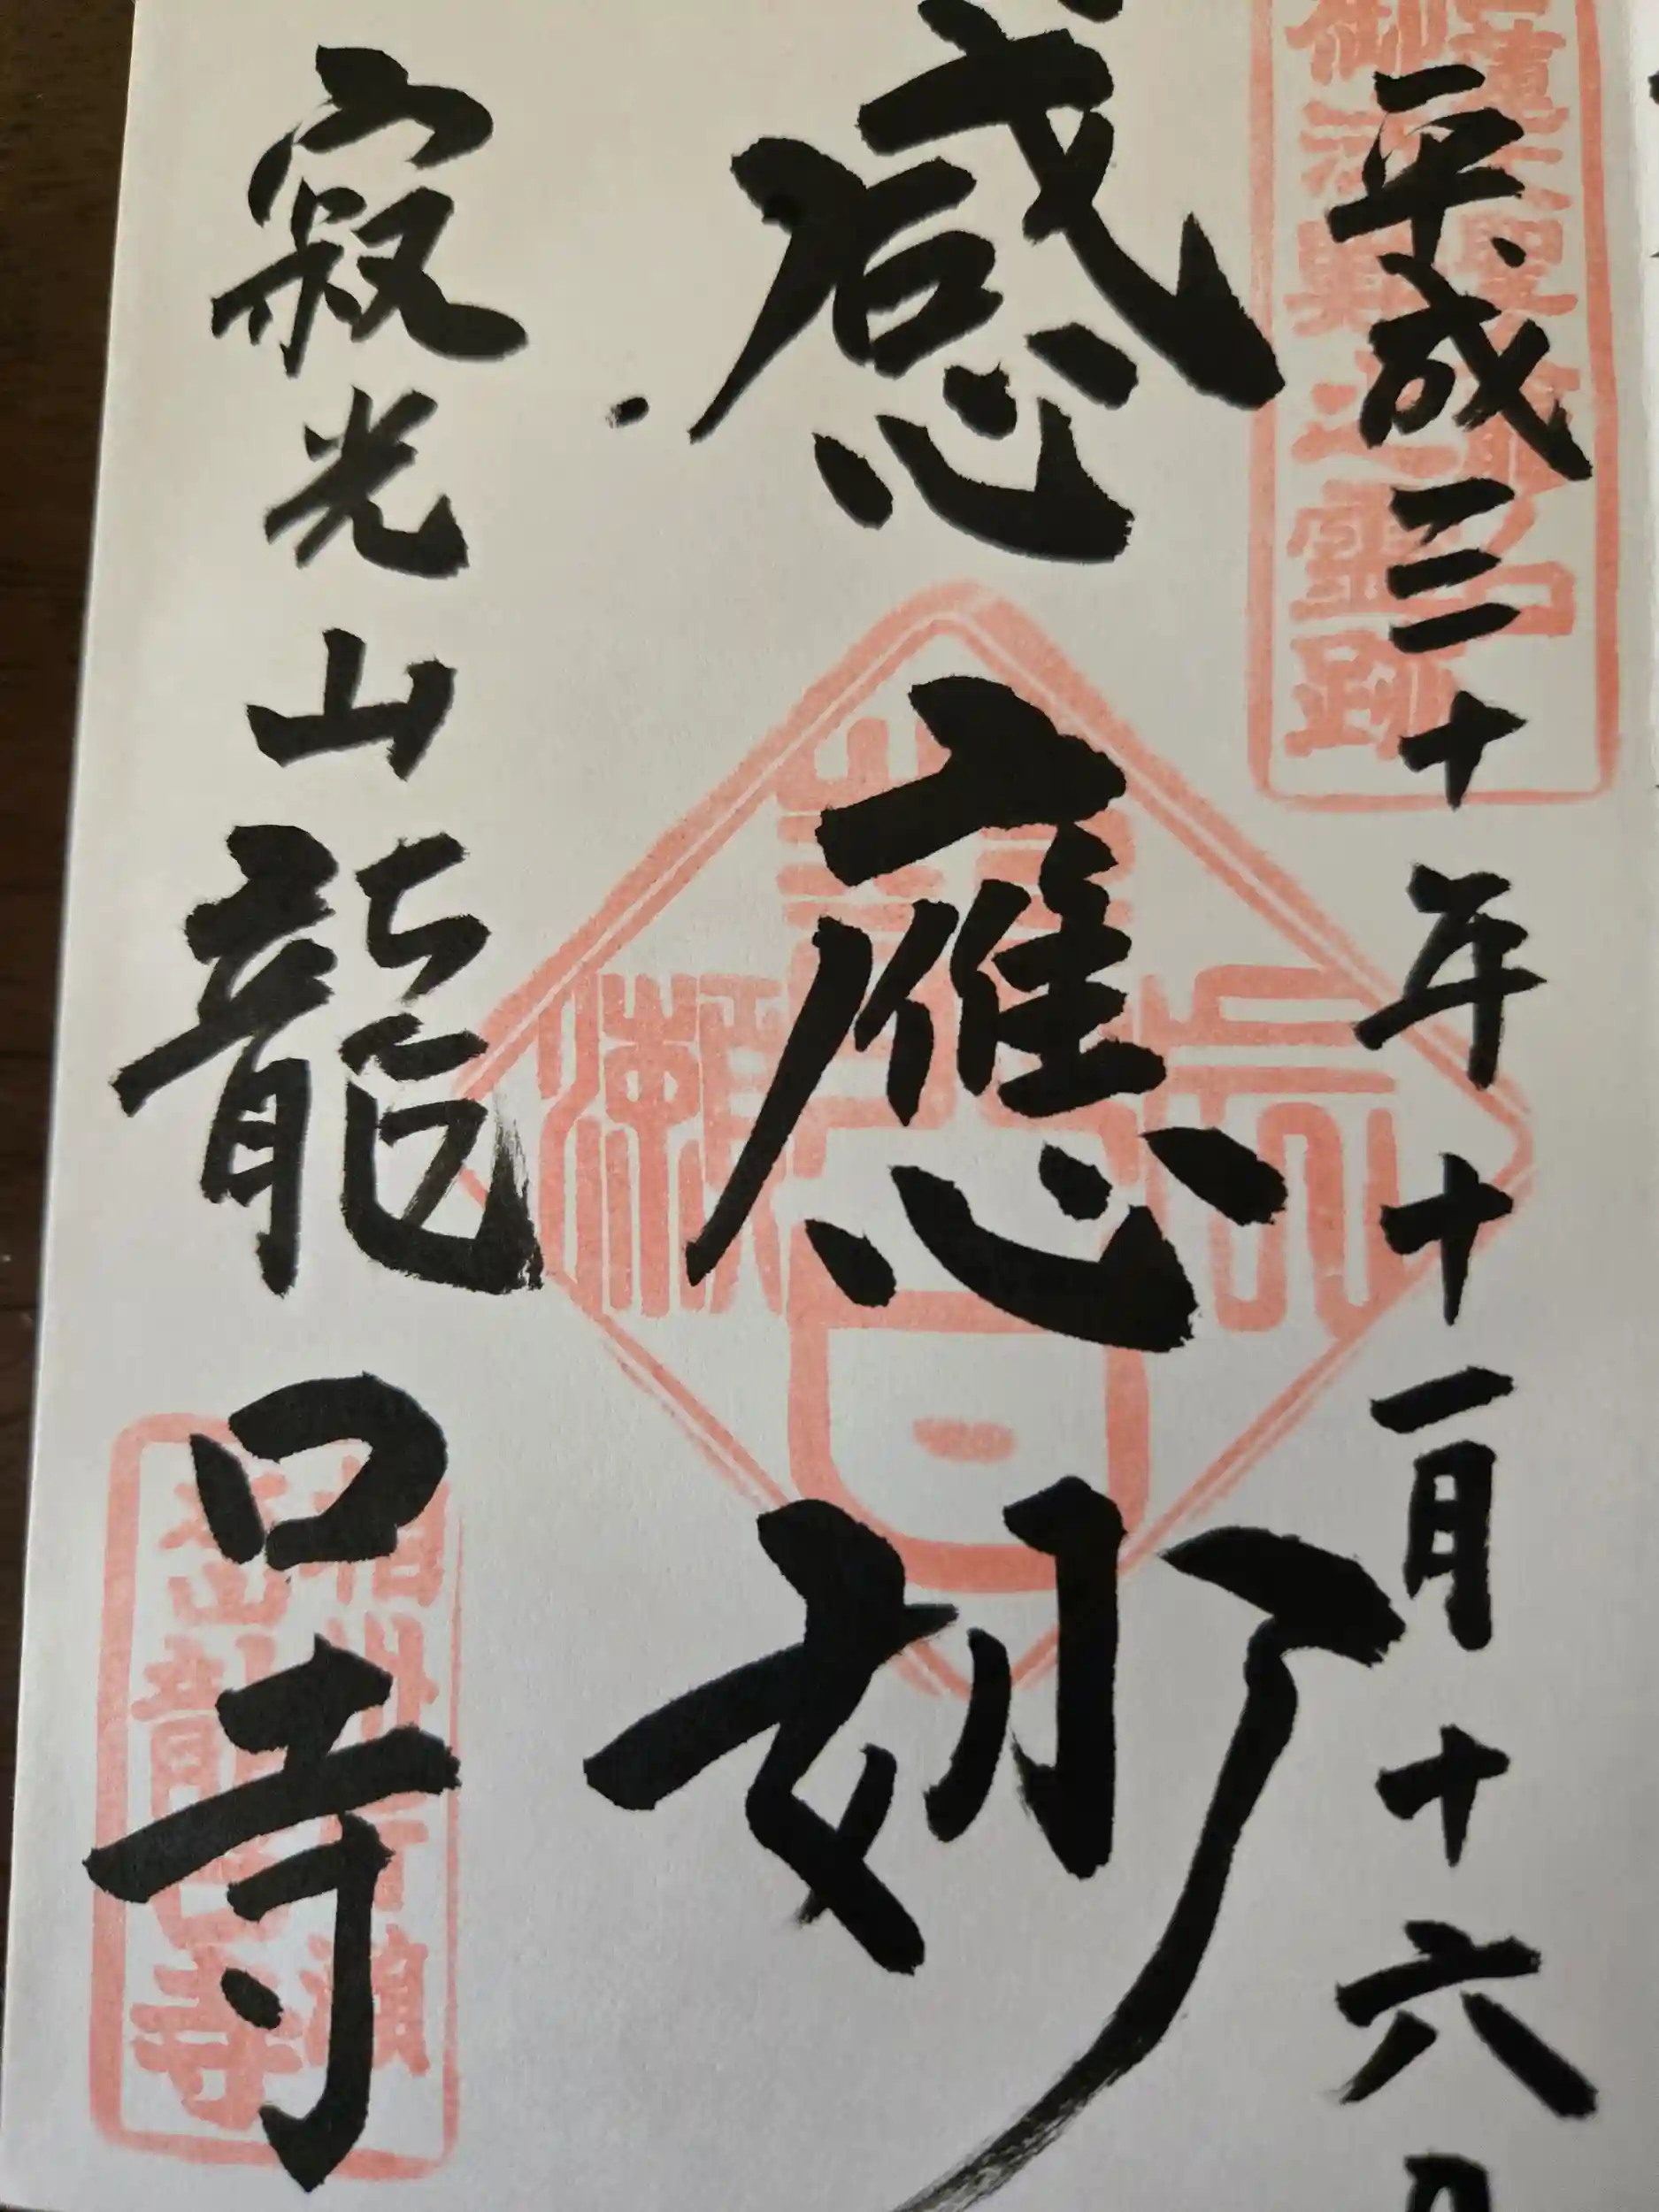 平成三十年十一月十六日
感應妙
寂光山龍口寺
御法難之霊跡
片瀬
龍口寺